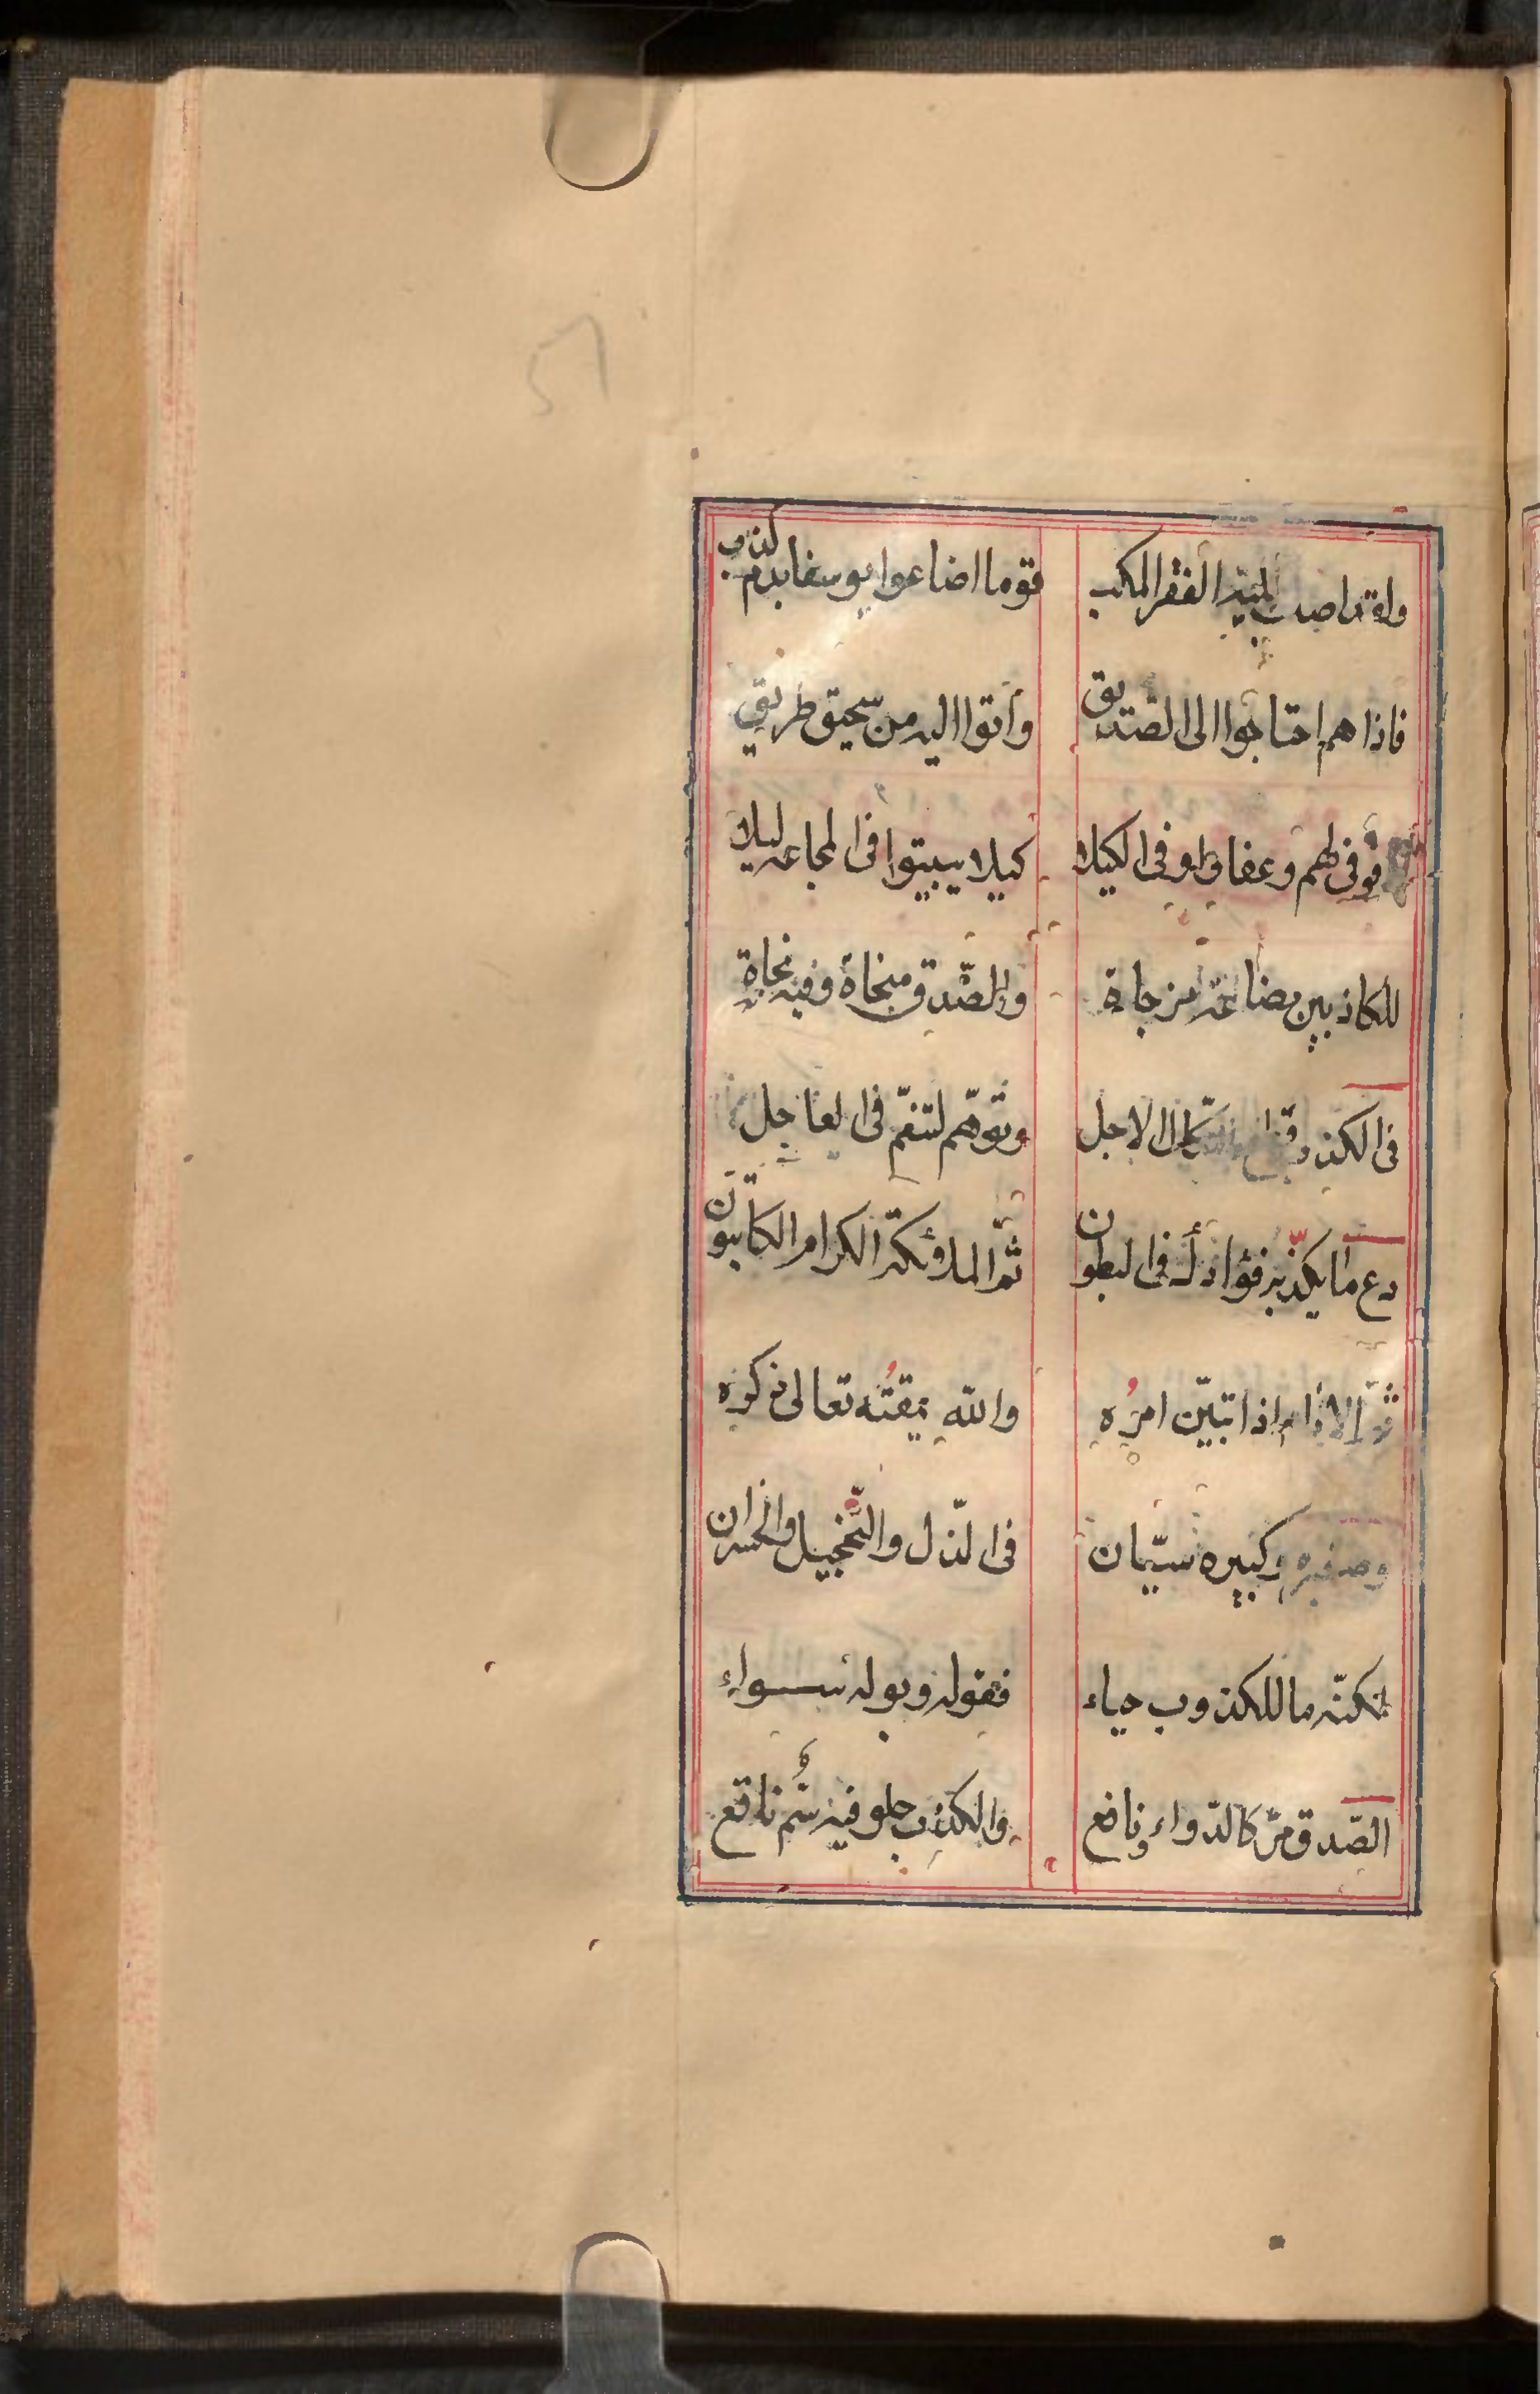 51
الفقر المكب قوما اضاعوا يوسفا بدم كذب
فاذا هم احتاجوا الى الصّديق وأتوا اليه من سحيق طريق
فوفى لهم وعفا واوفى الكيلا كيلا يبيتوا فى المجاعه ليلا
للكاذبين بضاعة مزجاة والصّدق منجاة وفيه نجاة
فى الكذب الاجل وتوهّم لتنعّم فى العاجل
دع ما يكذّبه فؤادك فى البطون ثمّ الملائكة الكرام الكاتبون
ثمّ الانام اذا تبيّن امرُه والله يمقتُه تعالى ذكره
وصغيره وكبيره سيّان فى الذّل والتّخجيل والخسران
لكنّه ما للكذوب حياء فقوله وبوله سواء
الصّدق مرّ كالدّواء ونافع والكذب حلو فيه سُم ناقع